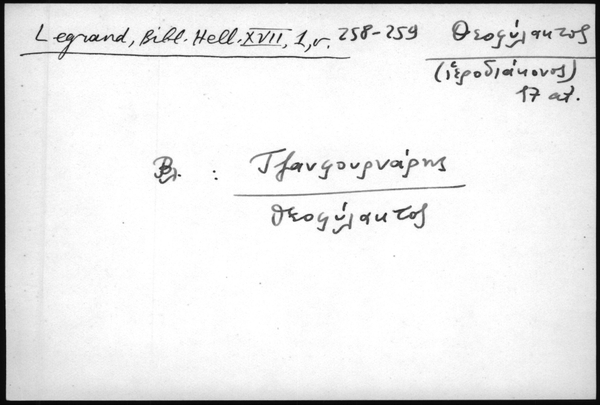 Legrand, Bibl. Hell. XVII, 1, σ. 258-259
Θεοφύλακτος
(ἱεροδιάκονος)
17 αἰ.
Βλ. : Τζανφουρνάρης
Θεοφύλακτος